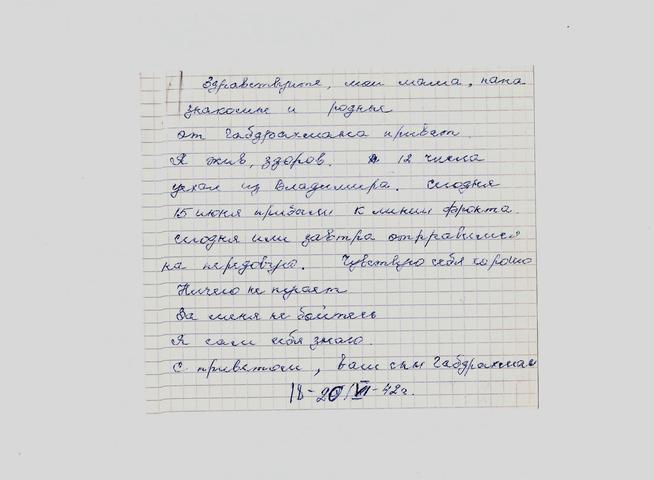 Здравствуйте, мои мама, папа
знакомые и родные
от Габдрахмана привет.
Я жив, здоров. 12 числа
уехал из Владимира. Сегодня
15 июня прибыли к линии фронта.
Сегодня или завтра отправимся
на передовую. Чувствую себя хорошо
Ничего не пугает
За меня не бойтесь
Я сам себя знаю.
С приветом, ваш сын Габдрахман
18-20/VI-42г.